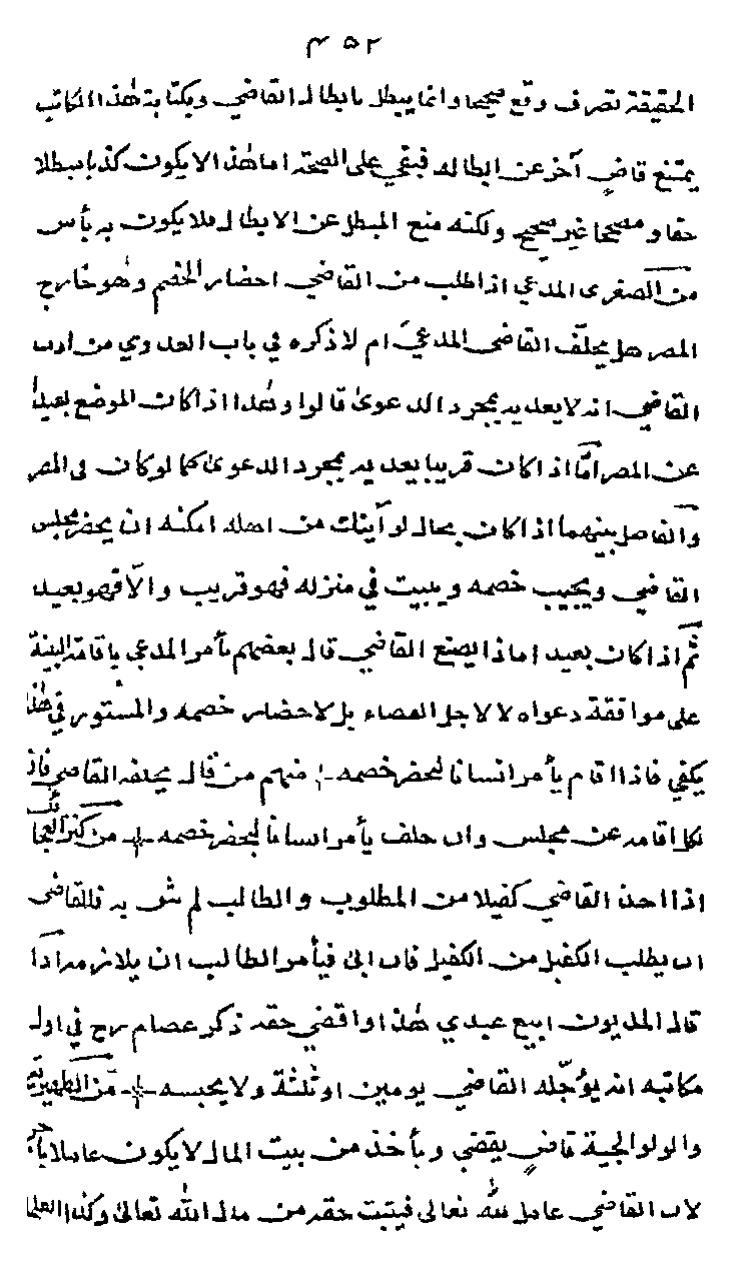 ۴۵۲
الحقيقة تصرف وقع صحيحا وانما يبطل بابطال القاضي وبكتابة هذا الكاتب
يمتنع قاضٍ آخر عن ابطاله فبقي على الصحة اما هذا لا يكون كذبا مبطلا
حقا و مصححا غير صحيح ولكنه منع المبطل عن الابطال فلا يكون به بأس
من الصغرى المدعي اذا طلب من القاضي احضار الخصم وهو خارج
المصر هل يحلّف القاضي المدعي ام لا ذكره في باب العدوي من ادب
القاضي انه لا يعديه بمجرد الدعوىٰ قالوا وهذا اذا كان الموضع بعيدا
عن المصر امّا اذا كان قريبا يعديه بمجرد الدعوىٰ كما لو كان في المصر
والفاصل بينهما اذا كان بحال لو ابتك من اهله امكنه ان يحضر مجلس
القاضي ويجيب خصمه ويبيت في منزله فهو قريب والّا فهو بعيد
ثمّ اذا كان بعيدا ماذا يصنع القاضي قال بعضهم يأمر المدعي باقامة البينة
على موافقة دعواه لا لاجل القضاء بل لاحضار خصمه والمستور في هذا
يكفي فاذا اقام يأمر انسانا ليحضر خصمه منهم من قال يحلفه القاضي فان
نكل اقامه عن مجلس وان حلف يأمر انسانا ليحضر خصمه من كنز
اذا اخذ القاضي كفيلا من المطلوب والطالب لم يثق به فالقاضي
ان يطلب الكفيل من الكفيل فان ابىٰ فيأمر الطالب ان يلازمه اذا
قال المديون ابيع عبدي هذا واقضي حقه ذكر عصام رح في اول
مكاتبه انه يؤجّله القاضي يومين او ثلثة ولا يحبسه من
والولوالجية قاضٍ يقضي ويأخذ من بيت المال لا يكون عاملا
لان القاضي عامل لله تعالى فيثبت حقه من مال الله تعالىٰ وكذا